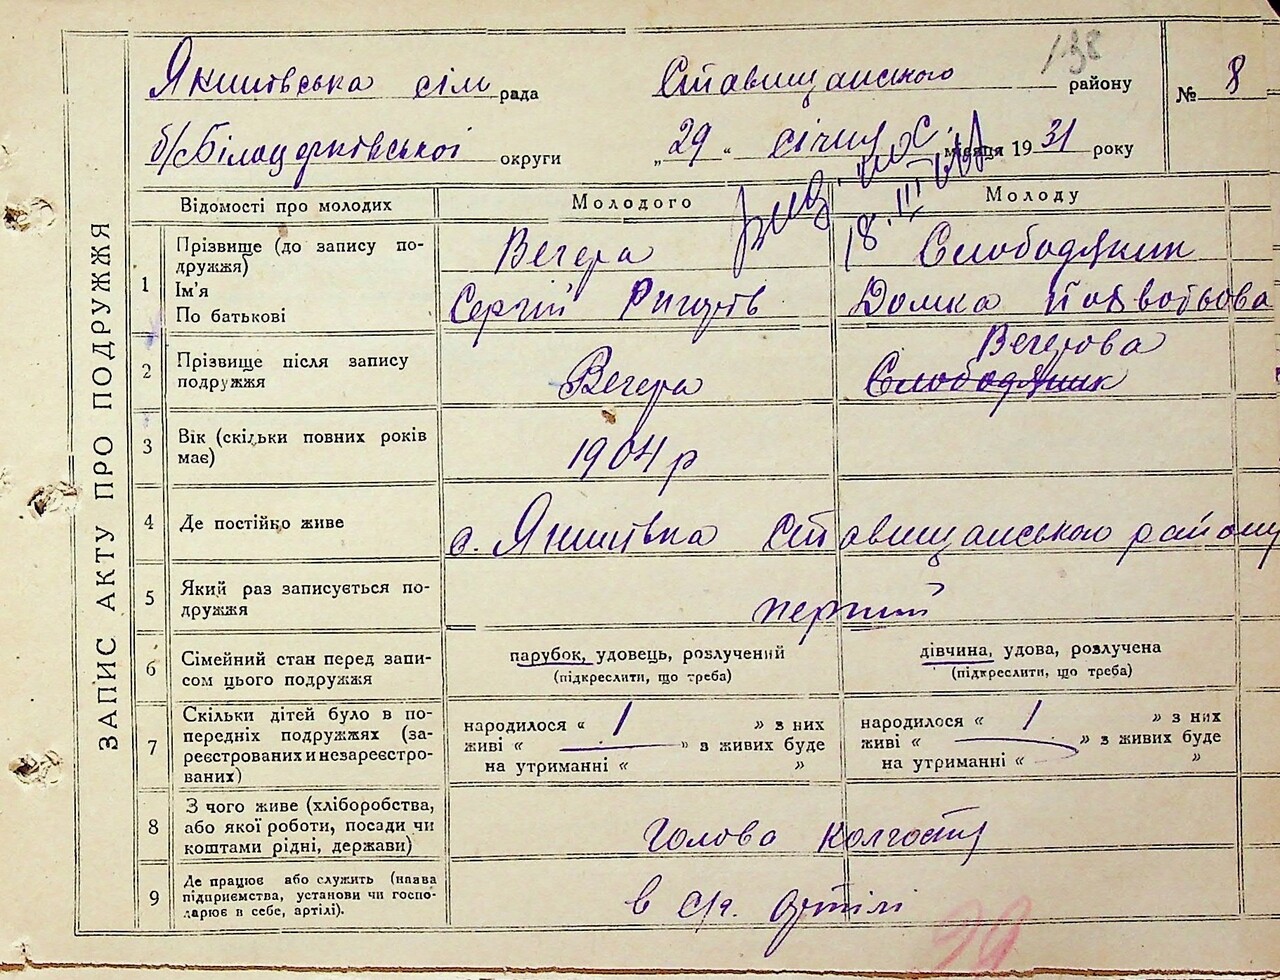 ЗАПИС АКТУ ПРО ПОДРУЖЖЯ
138
Якимівська сіл рада Ставищанського району № 8
б/с Білоцерківської округи „29“ січня місяця 1931 року
18.III
Відомості про молодих Молодого Молоду
1 Прізвище (до запису по-
дружжя)
Ім'я
По батькові
Вечера Слободяник
Сергій Домка
2 Прізвище після запису
подружжя
Вечера Вечерова
Слободяник
3 Вік (скільки повних років
має)
1904 р
4 Де постійно живе с. Якимівка Ставищанського району
5 Який раз записується по-
дружжя
перший
6 Сімейний стан перед запи-
сом цього подружжя
парубок, удовець, розлучений
(підкреслити, що треба)
дівчина, удова, розлучена
(підкреслити, що треба)
7 Скільки дітей було в по-
передніх подружжях (за-
реєстрованих и незареєстро-
ваних)
народилося « / » з них
живі « — » з живих буде
на утриманні « »
народилося « / » з них
живі « — » з живих буде
на утриманні « »
8 З чого живе (хліборобства,
або якої роботи, посади чи
коштами рідні, держави)
Голова колгоспу
9 Де працює або служить (назва
підприємства, установи чи госпо-
дарює в себе, артілі).
в с/г. артілі
29